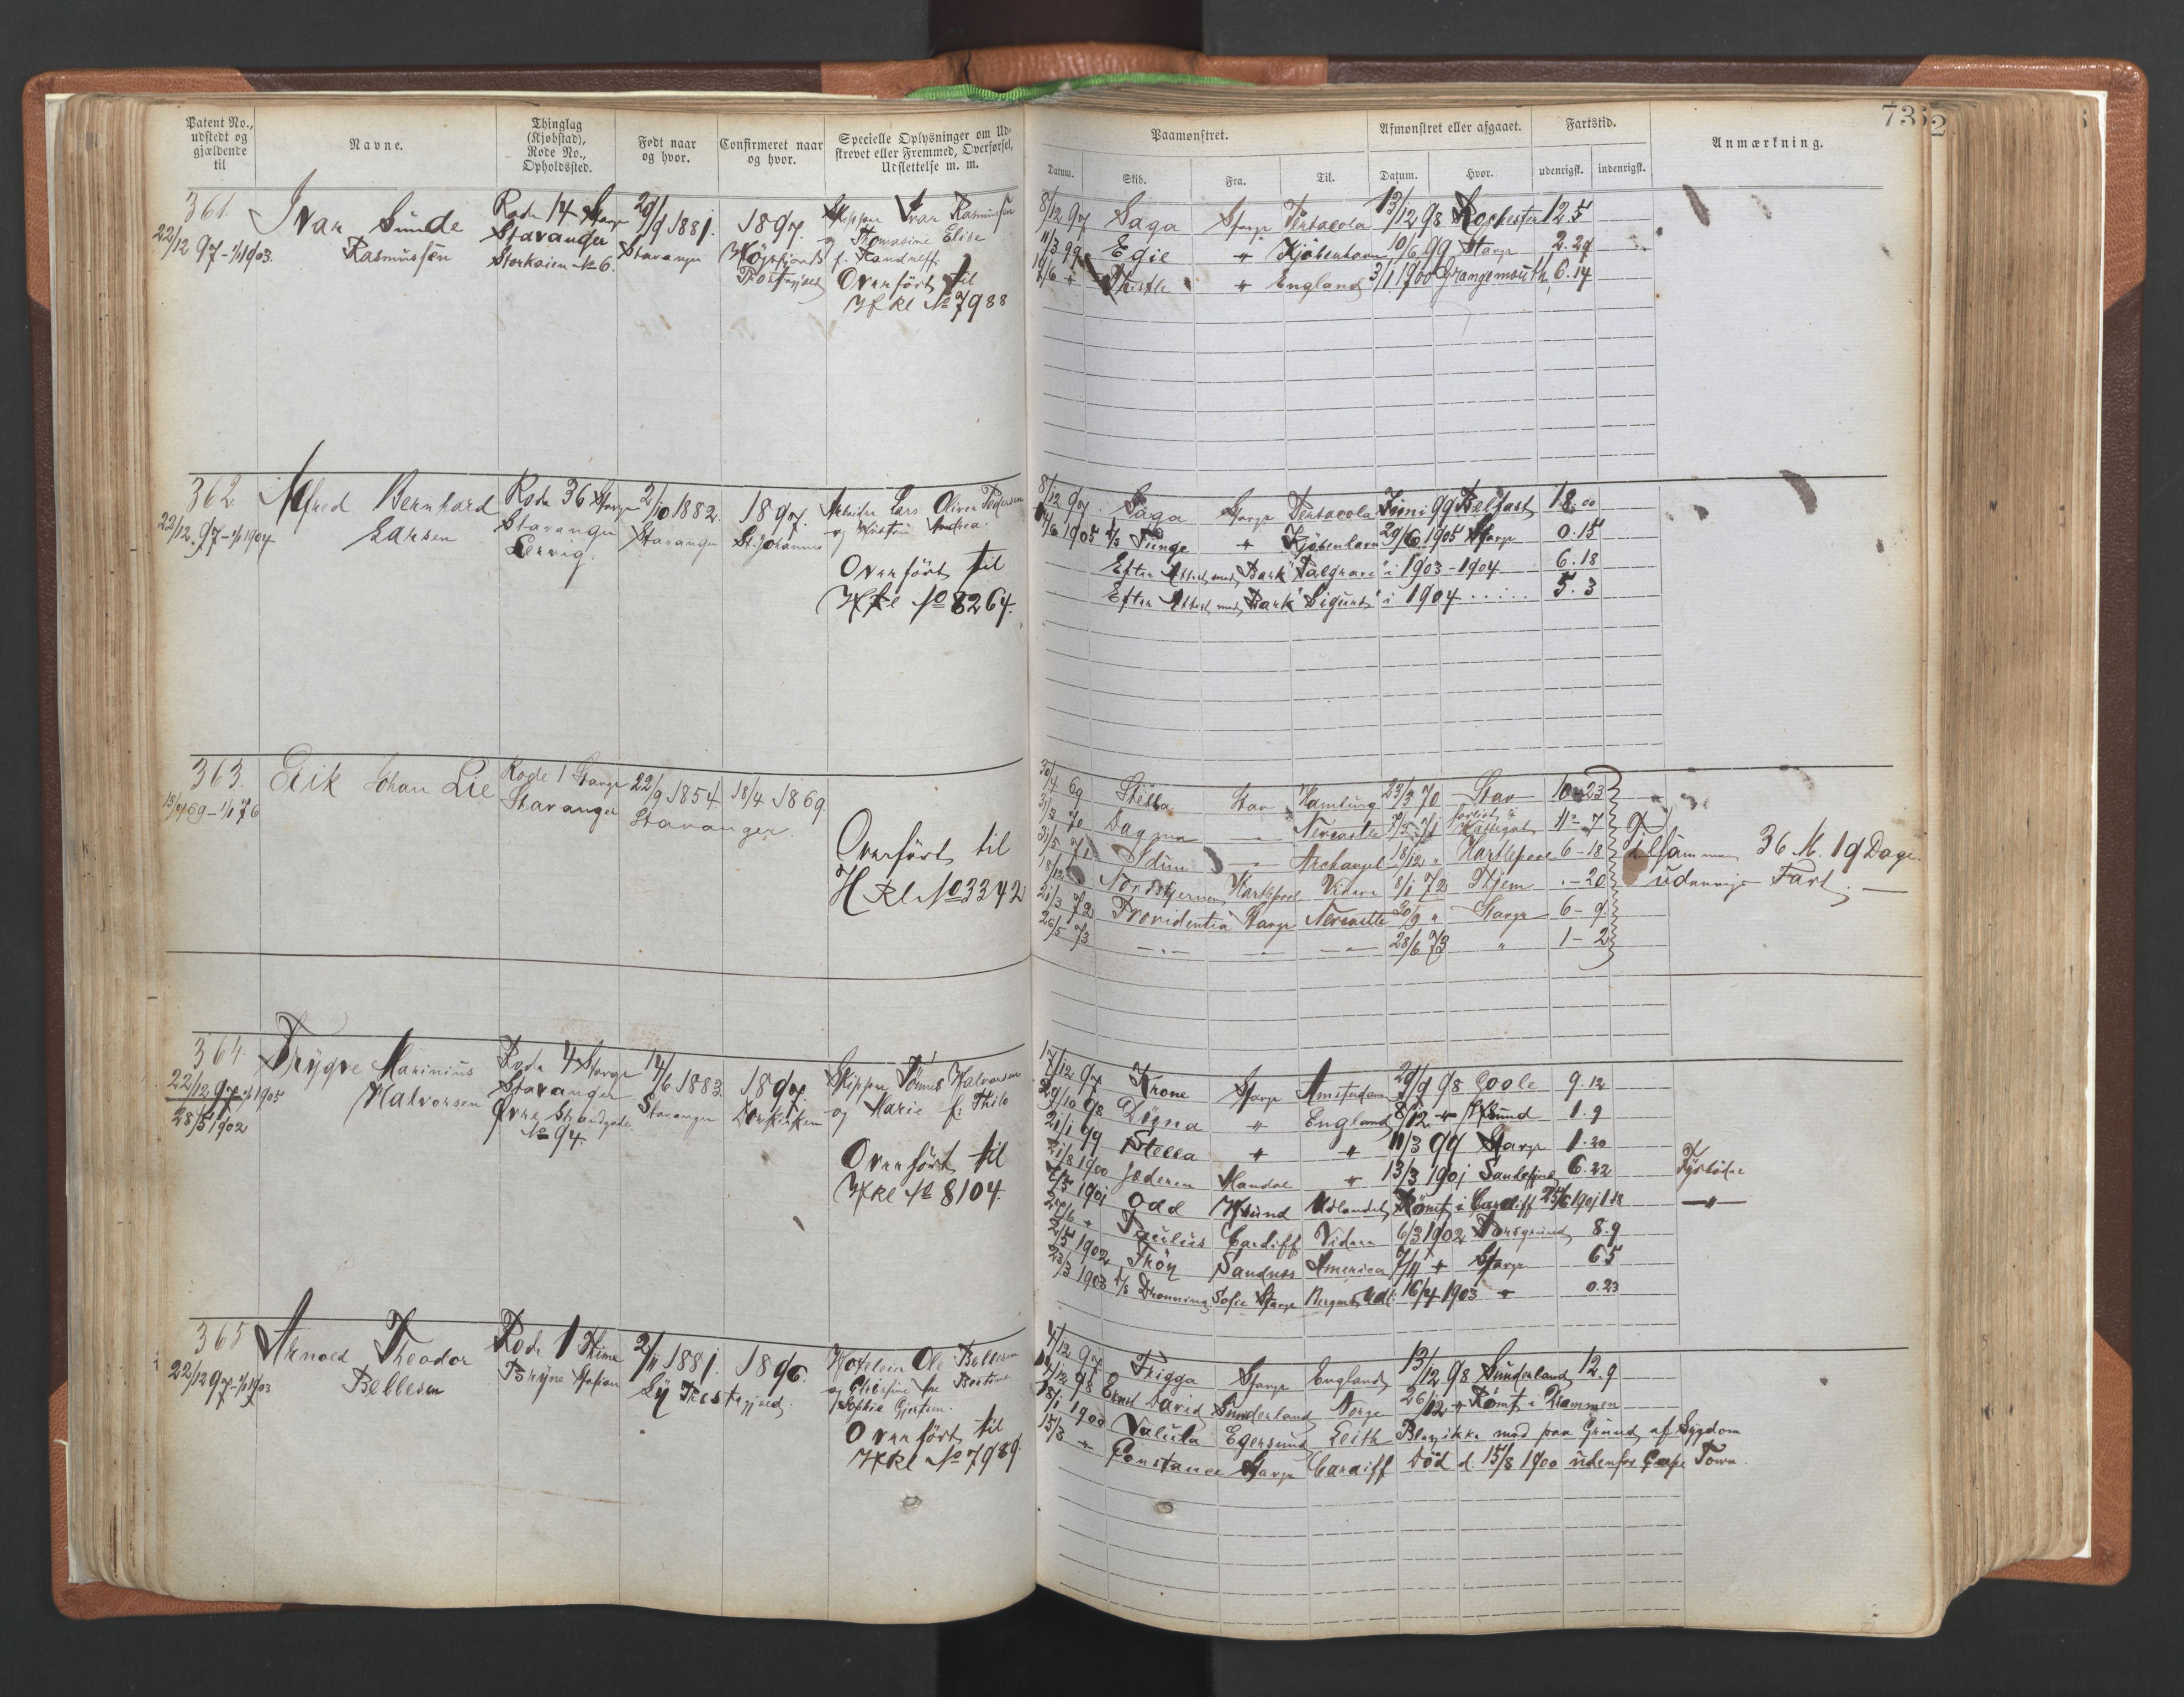 Patent No.,
udstedt og
gjældende
til
Navne.
Thinglag
(Kjøbstad),
Rode No.,
Opholdssted.
Født naar
og hvor.
Confirmeret naar
og hvor.
Specielle Oplysninger om Ud-
skrevet eller Fremmed, Overførsel,
Udslettelse m. m.
Paamønstret.
Datum.
Skib.
Fra.
Til.
Afmønstret eller afgaaet.
Datum.
Hvor.
Fartstid.
udenrigsk.
indenrigsk.
Anmærkning.
73
2
361.
22/12 97 - 1/1 1903.
Ivar Sunde
Rasmussen
Rode 14 Stavgr
Stavanger
Storkaien No 6.
29/9 1881.
Stavanger
1897.
Høgsfjords
Præstegjæld
Skipper Ivar Rasmussen
og Thomasine Elise
Overført til
Hkl No 7988
8/12 97 Saga Stavgr Pensacola 13/12 98 Rochester 12.5
11/3 99 Egil " Kjøbenhavn 10/6 99 Stavgr 2.29
14/6 " Thistle " England 3/1 1900 Grangemouth 6.14
362.
22/12 97 - 1/1 1904
Alfred Bernhard
Larsen
Rode 36 Stavgr
Stavanger
Lervig.
2/10 1882.
Stavanger
1897.
St. Johannes
Arbeider Lars Oliver Pedersen
og Kirstin Andrea.
Overført til
Hkl No 8264.
8/12 97 Saga Stavgr Pensacola Juni 99 Belfast 18.00
14/6 1905 D/S Tunge " Kjøbenhavn 29/6 1905 Stavgr 0.15
Efter Attest med Bark "Palgrave" i 1903-1904 6.18
Efter Attest med Bark "Sigurd" i 1904 5.3
363.
18/4 69 - 1/1 76
Erik Johan Lie
Rode 1 Stavgr
Stavanger
22/9 1854.
Stavanger.
18/4 1869.
Overført til
H Kl No 3342
30/4 69 Stella Stav Hamburg 23/3 70 Stav 10-23
31/3 70 Dagmar " Newcastle 7/3 71 forlist i Kattegat 11-7
31/5 71 Idun " Archangel 18/12 " Hartlepool 6-18
18/12 " Nordstjernen Hartlepool Videre 8/1 72 Hjem .-20
21/3 72 Providentia Stavgr Newcastle 30/9 " Stavgr 6-9
26/5 73 -"- -"- -"- 28/6 73 " 1-2
tilsammen 36 M. 19 Dage
udenrigs Fart.
364.
22/12 97 - 1/1 1905
28/5 1902
Trygve Marinius
Halvorsen
Rode 4 Stavgr
Stavanger
Øvre Strandgade
No 94.
14/6 1883.
Stavanger
1897.
Domkirken
Skipper Tønnes Halvorsen
og Marie f. Thilo
Overført til
Hkl No 8104.
17/12 97 Krone Stavgr Amsterdam 29/9 98 Goole 9.12
29/10 98 Døgna " England 8/12 " Hsund 1.9
21/1 99 Stella " " 11/3 99 Stavgr 1.20
21/8 1900 Jæderen Mandal " 13/3 1901 Sandefjord 6.22 Fyrbøder
7/5 1901 Odd Hsund Udlandet Rømt i Cardiff 25/6 1901 1.18 -"-
27/6 " Cardiff Videre 6/3 1902 Porsgrund 8.9
2/5 1902 Trøn Sandnes America 7/11 " Stavgr 6 5
23/3 1903 D/S Dronning Sofie Stavgr Bergen Udl. 16/4 1903 " 0.23
365
22/12 97 - 1/1 1903
Arnold Theodor
Bellesen
Rode 1 Thime
Bryne Station
2/11 1881.
Ly Præstegjæld.
1896.
Hoteleier Ole Bellesen
Sophie Gjertsen.
Overført til
Hkl No 7989.
4/12 97 Frigga Stavgr England 13/12 98 Sunderland 12.9
14/12 98 Ernst David Sunderland Norge 26/12 " Rømt i Drammen
18/1 1900 Valuta Egersund Leith Blev ikke med paa Grund af Sygdom
15/3 " Constance Stavgr Cardiff Død d. 15/8 1900 udenfor Cape Town.